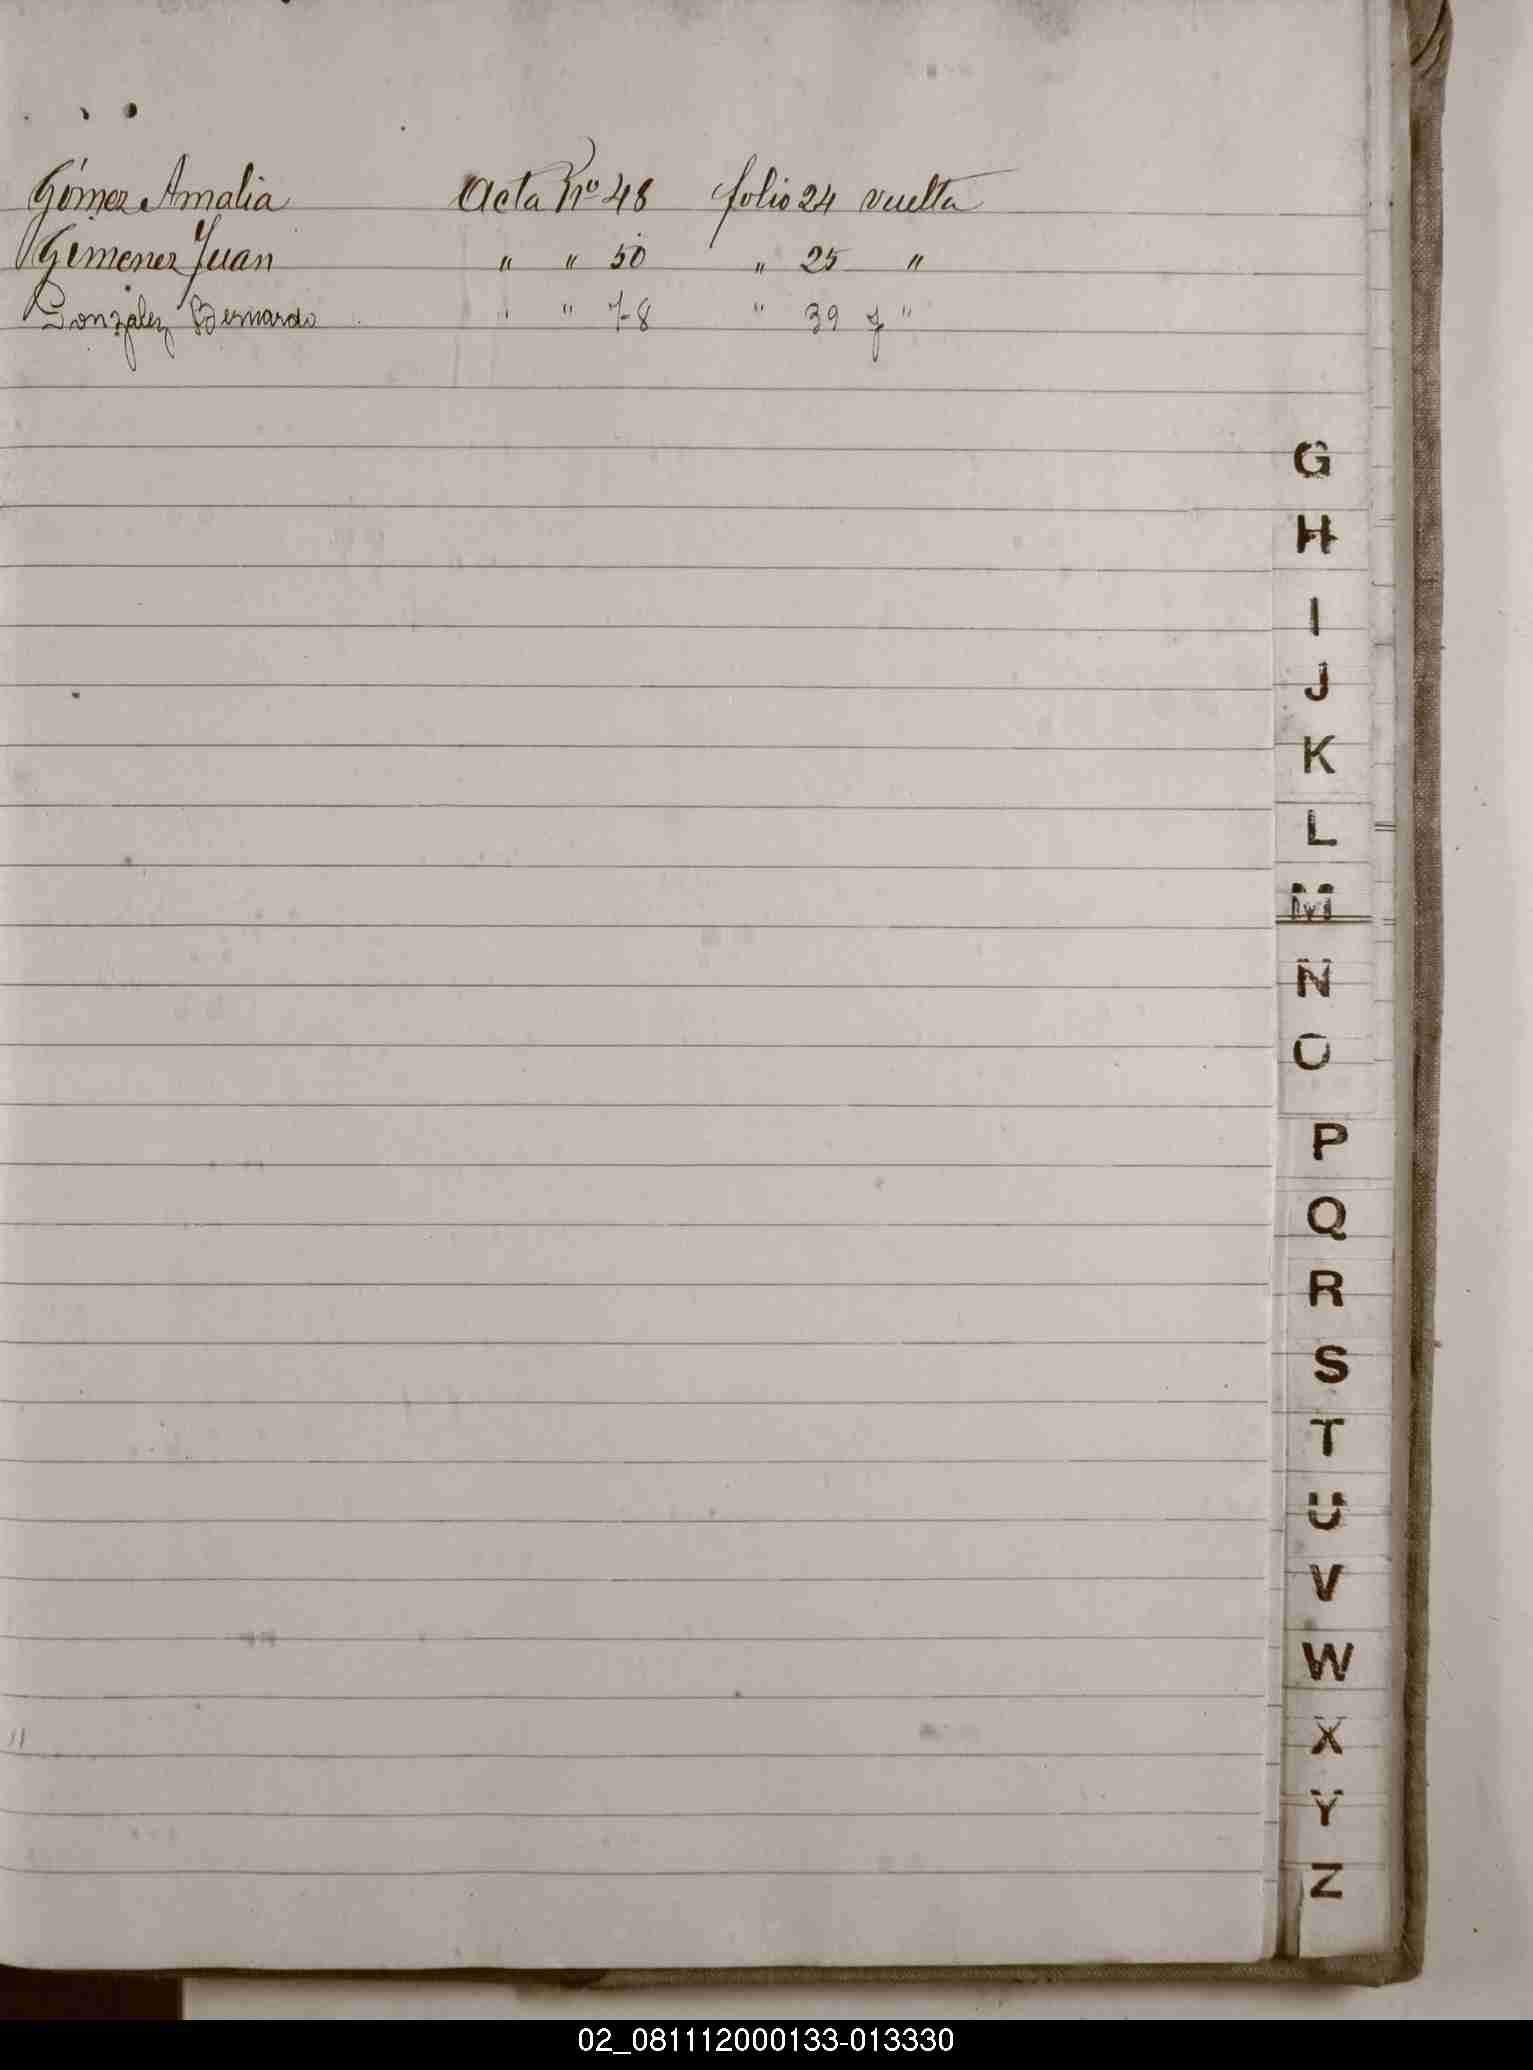 Gómez Amalia Acta Nº 48 folio 24 vuelta
Gimenez Juan " " 50 " 25 "
González Bernardo " " 78 " 39 y "
G
H
I
J
K
L
M
N
O
P
Q
R
S
T
U
V
W
X
Y
Z
02_081112000133-013330